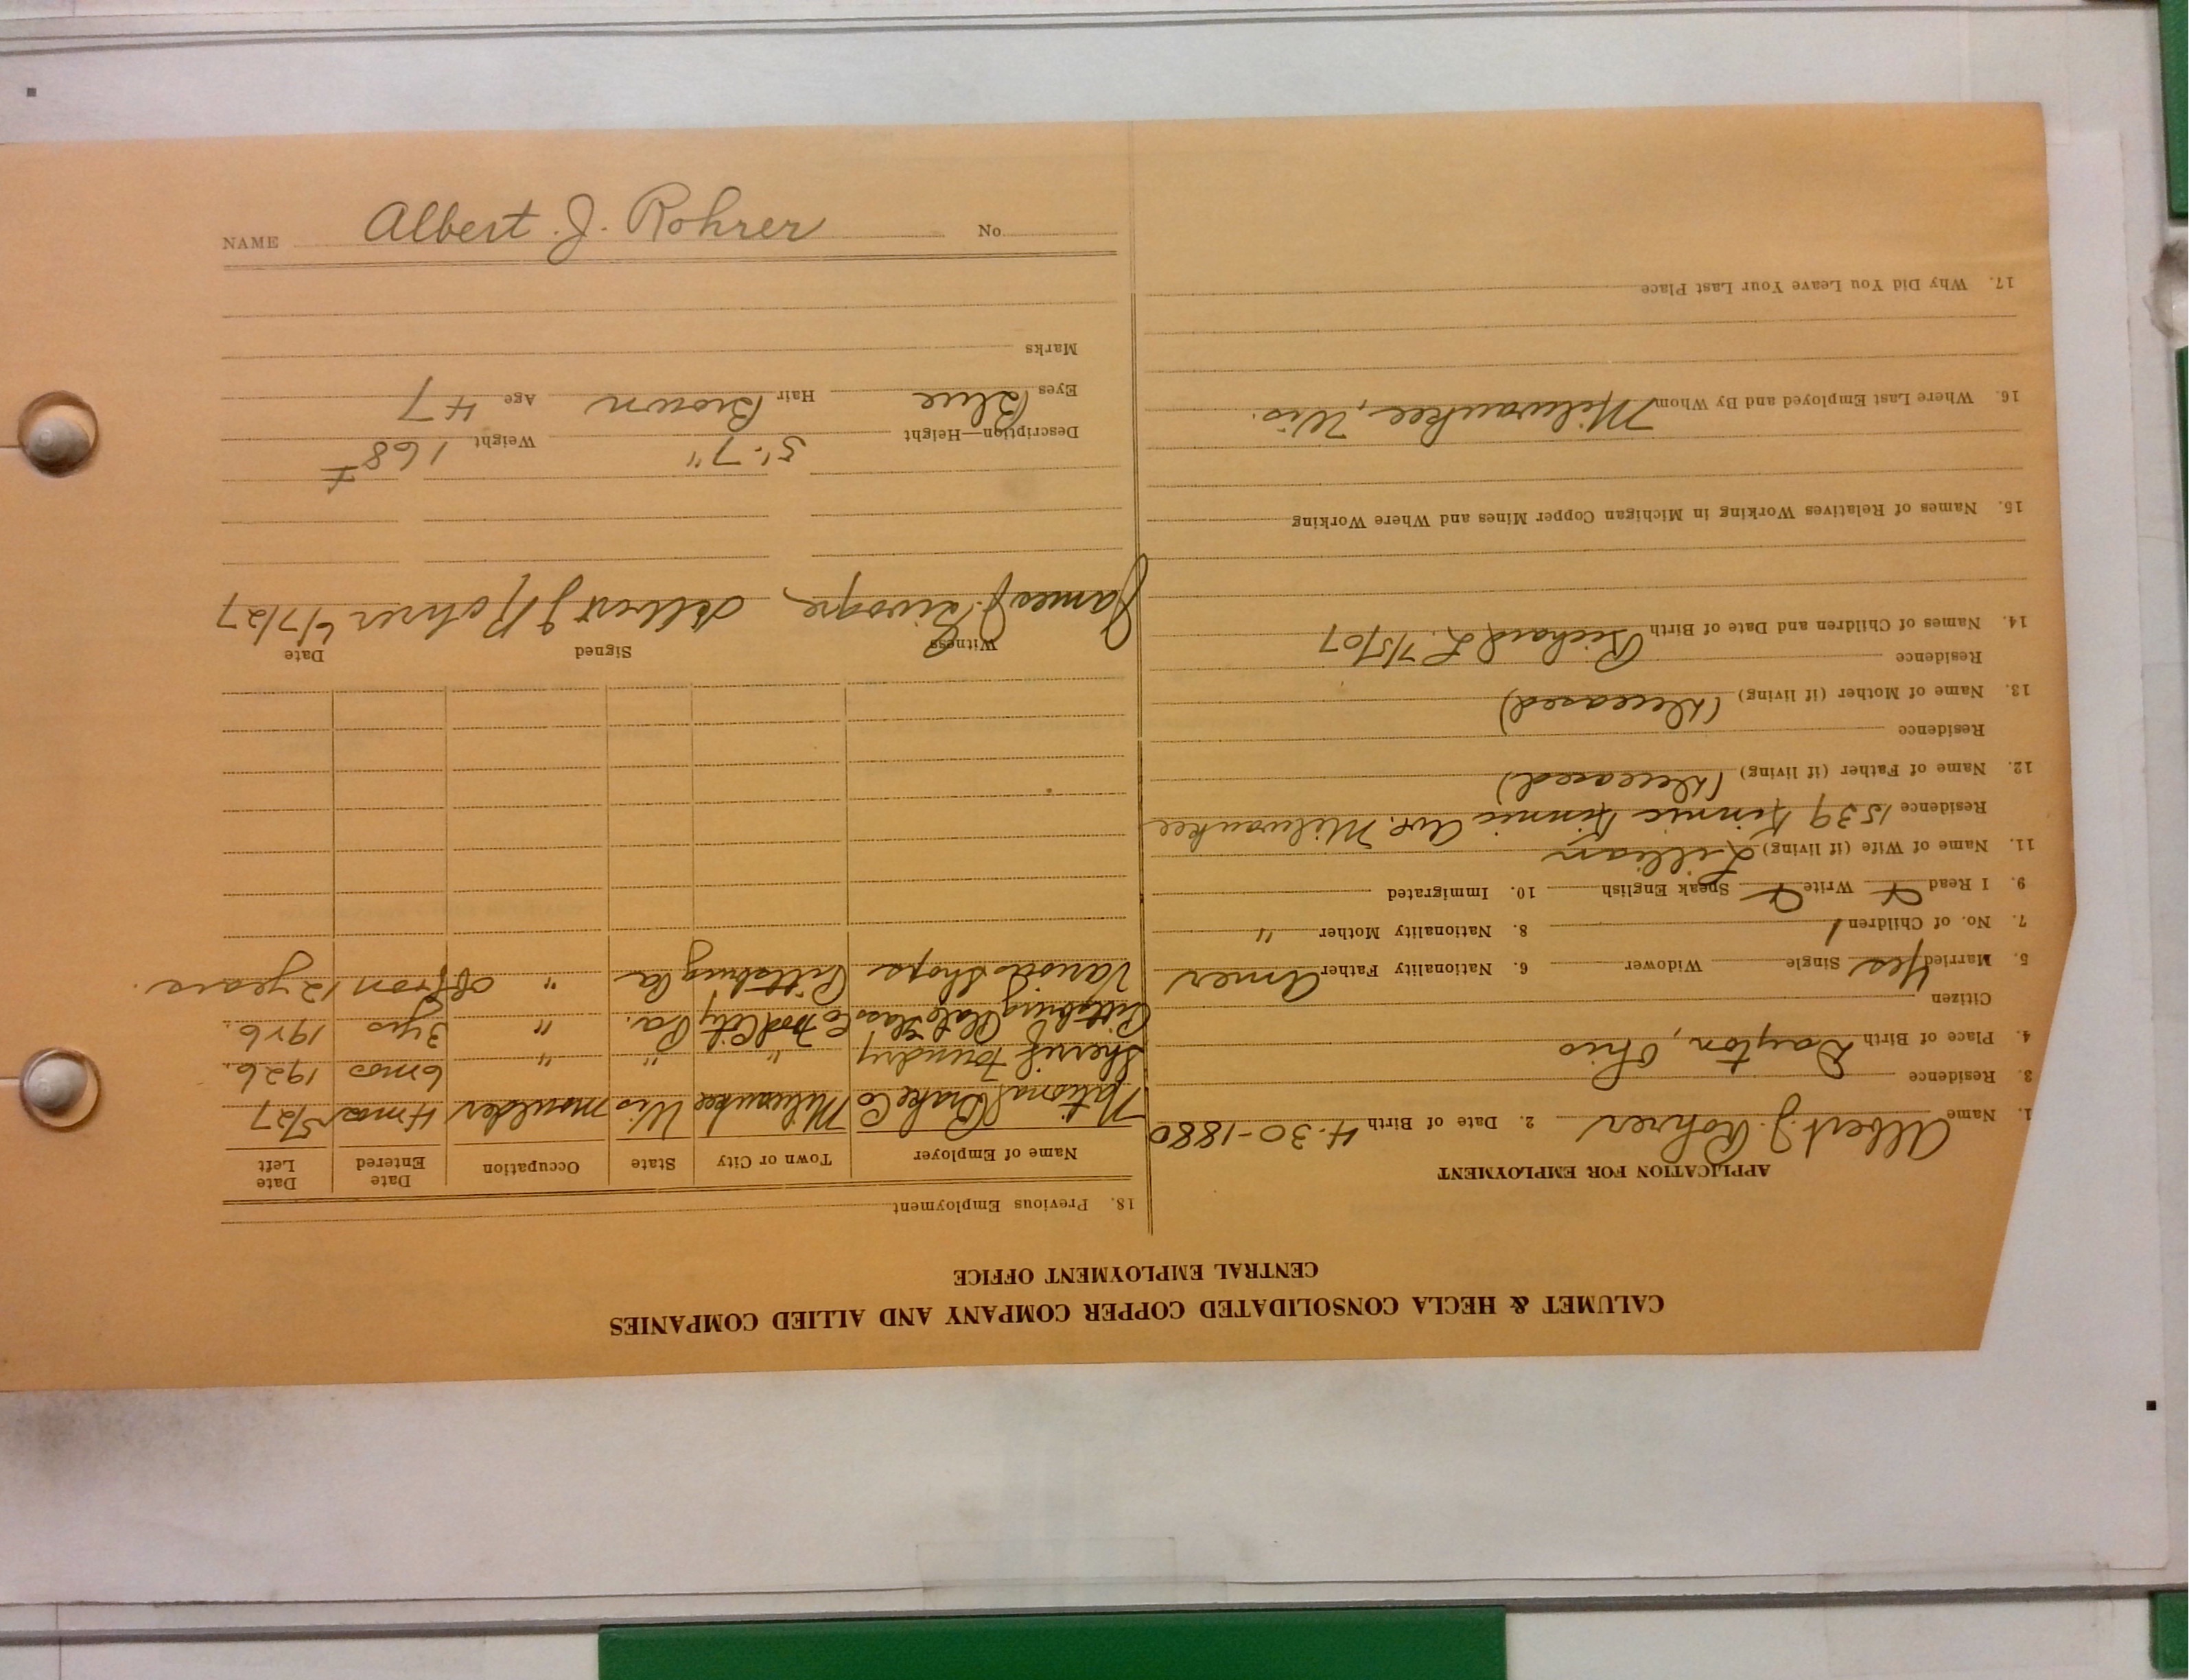 CALUMET & HECLA CONSOLIDATED COPPER COMPANY AND ALLIED COMPANIES
CENTRAL EMPLOYMENT OFFICE
APPLICATION FOR EMPLOYMENT
1. Name Albert J. Rohrer 2. Date of Birth 4-30-1880
3. Residence
4. Place of Birth Dayton, Ohio
Citizen
5. Married Yes Single Widower 6. Nationality Father Amer
7. No. of Children 1 8. Nationality Mother "
9. I Read Write Speak English 10. Immigrated
11. Name of Wife (if living) Lillian
Residence 1539 Kinnic Kinnic Ave. Milwaukee
12. Name of Father (if living) (Deceased)
Residence
13. Name of Mother (if living) (Deceased)
Residence
14. Names of Children and Date of Birth Richard L. 7/5/07
15. Names of Relatives Working in Michigan Copper Mines and Where Working
16. Where Last Employed and By Whom Milwaukee, Wis.
17. Why Did You Leave Your Last Place
18. Previous Employment
Name of Employer Town or City State Occupation Date Entered Date Left
National Brake Co Milwaukee Wis moulder 4 mos 5/27
Sherrif Foundry " " " 6 mos 1926.
Pittsburg Plate Glass Co Ford City Pa. " 3 yrs 1926.
Various Shops Pittsburg Pa " off & on 12 years.
Witness Signed Date
James J. Albert J Rohrer 6/7/27
Description—Height 5'-7" Weight 168 ±
Eyes Blue Hair Brown Age 47
Marks
NAME Albert. J. Rohrer No.